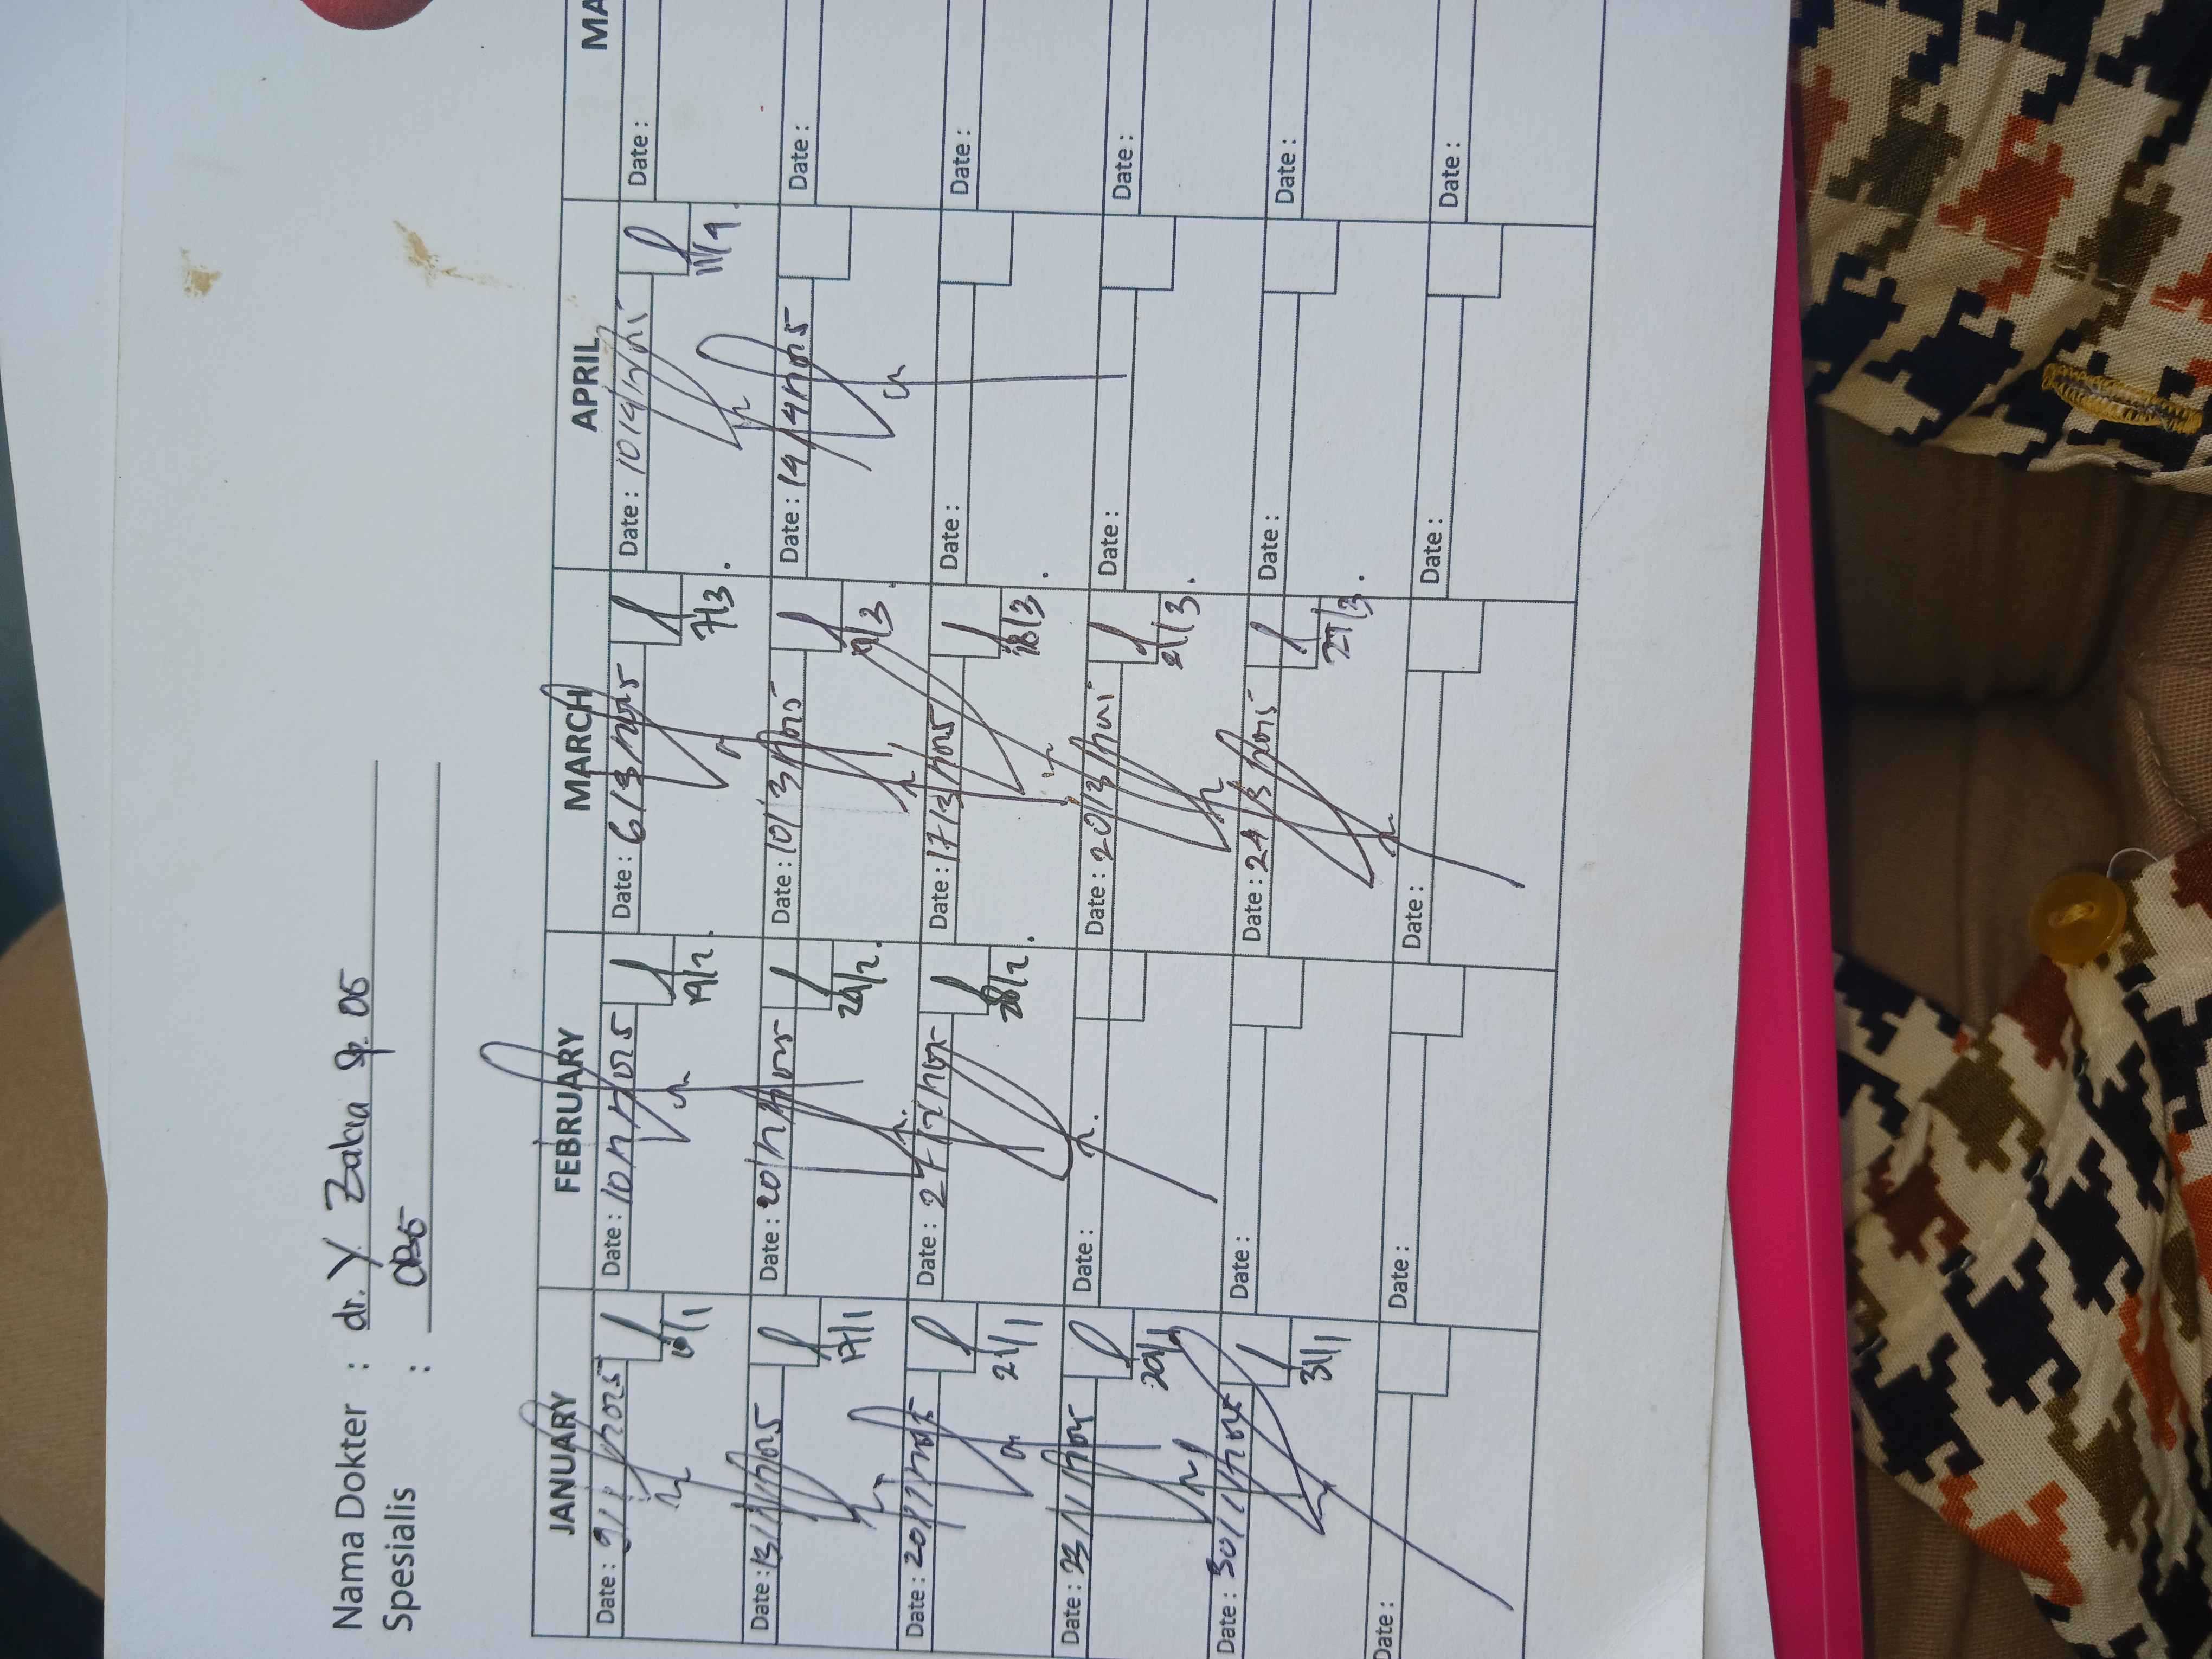 Nama Dokter : dr. Y. Zaka Sp. OG
Spesialis :
JANUARY FEBRUARY MARCH APRIL MA
Date : 9/1/2025 Date : 10/2/2025 Date : 6/3/2025 Date : 10/4/2025 Date :
10/1 19/2 7/3 11/4
Date : 13/1/2025 Date : 20/2/2025 Date : 10/3/2025 Date : 14/4/2025 Date :
17/1 24/2
Date : 20/1/2025 Date : 27/2/2025 Date : 17/3/2025 Date : Date :
21/1 28/2 18/3
Date : 23/1/2025 Date : Date : 20/3/2025 Date : Date :
21/3
Date : 30/1/2025 Date : Date : 24/3/2025 Date : Date :
31/1 27/3
Date : Date : Date : Date : Date :